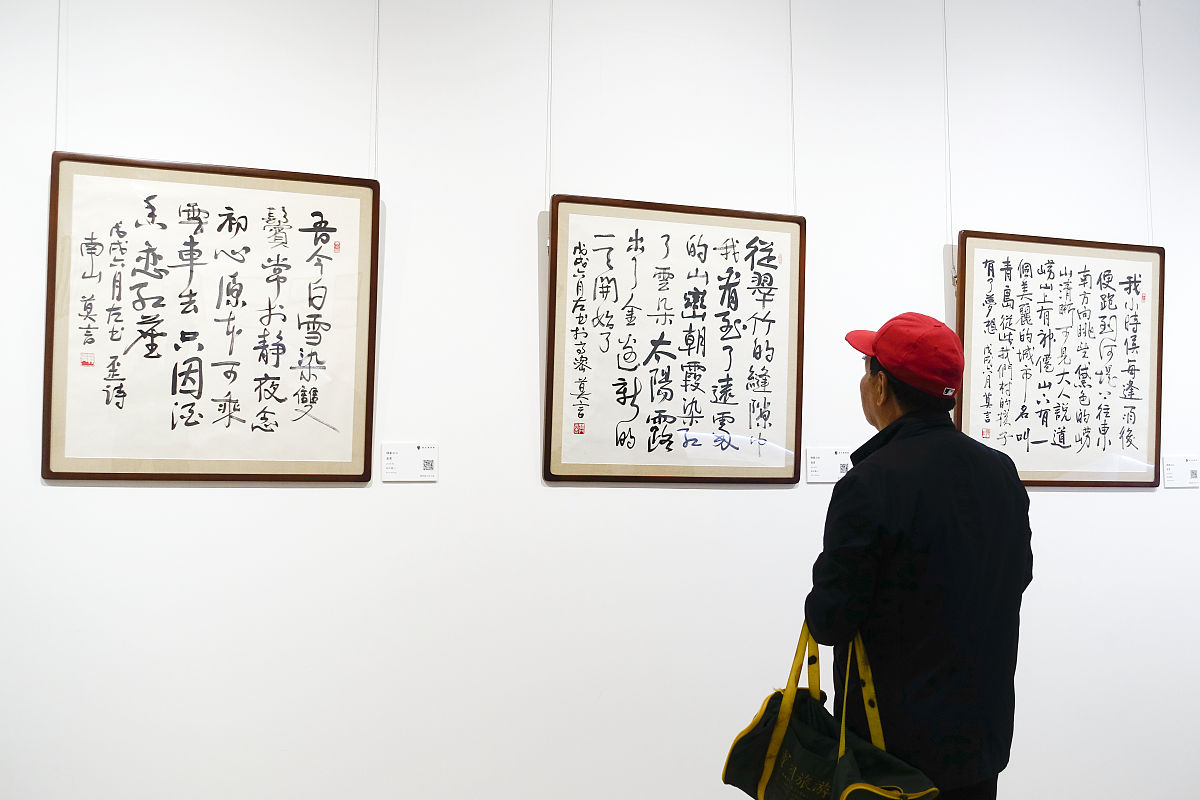 吾今白雪染雙
鬢常於静夜念
初心原本可乘
雲車去只因酒
香戀红塵
戊戌六月左书歪詩
南山莫言
從翠竹的縫隙中
我看到了遠處
的山巒朝霞染红
了雲朵太陽露
出了金邊新的
一天開始了
戊戌六月左书於高密莫言
我小時候每逢雨後
便跑到河堤上往東
南方向眺望黛色的嶗
山清晰可見大人說道
嶗山上有神僊山下有一
個美麗的城市名叫
青島從此我們村的孩子
有了夢想戊戌六月莫言
旅游